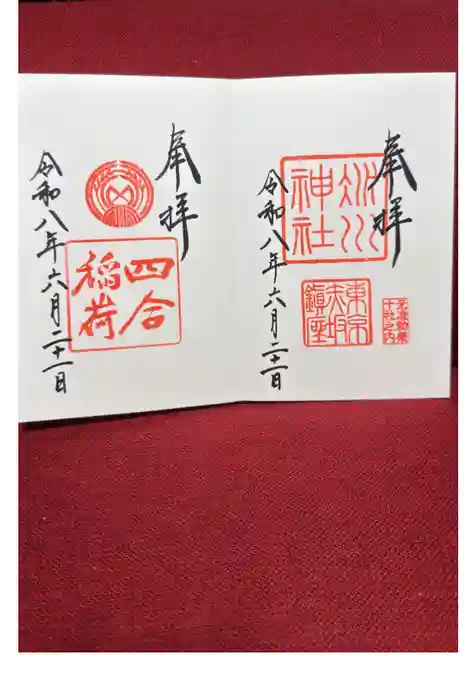 奉拝
氷川神社
東京赤坂鎮座
元准勅祭十社之内
令和八年六月二十一日
奉拝
四合稲荷
令和八年六月二十一日